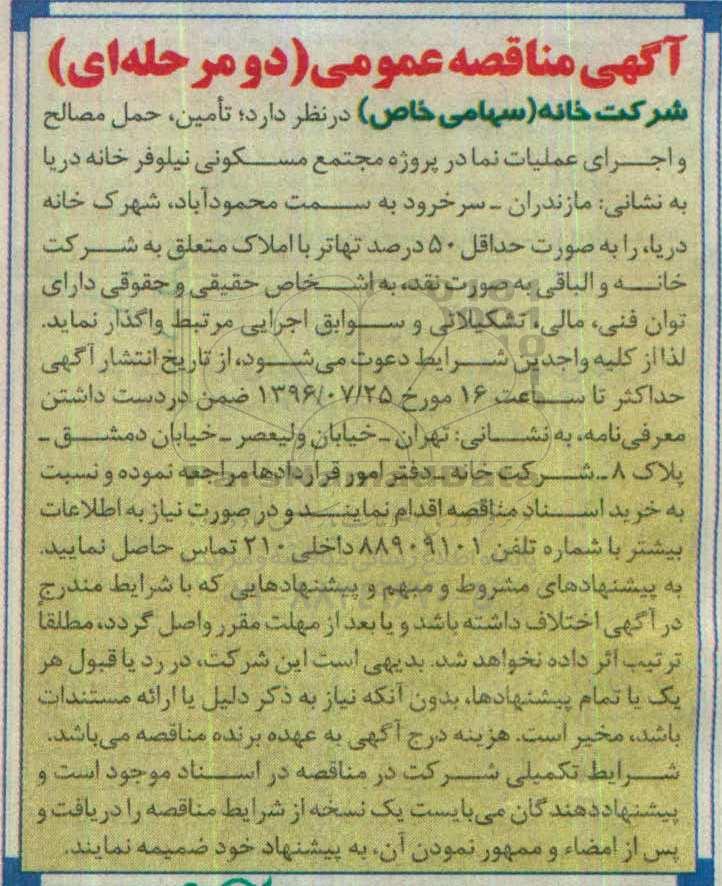 آگهی مناقصه عمومی (دو مرحله‌ای)
شرکت خانه (سهامی خاص) درنظر دارد؛ تأمین، حمل مصالح
و اجرای عملیات نما در پروژه مجتمع مسکونی نیلوفر خانه دریا
به نشانی: مازندران ـ سرخرود به سمت محمودآباد، شهرک خانه
دریا، را به صورت حداقل ۵۰ درصد تهاتر با املاک متعلق به شرکت
خانه و الباقی به صورت نقد، به اشخاص حقیقی و حقوقی دارای
توان فنی، مالی، تشکیلاتی و سوابق اجرایی مرتبط واگذار نماید.
لذا از کلیه واجدین شرایط دعوت می‌شود، از تاریخ انتشار آگهی
حداکثر تا ساعت ۱۶ مورخ ۱۳۹۶/۰۷/۲۵ ضمن دردست داشتن
معرفی‌نامه، به نشانی: تهران ـ خیابان ولیعصر ـ خیابان دمشق ـ
پلاک ۸ ـ شرکت خانه ـ دفتر امور قراردادها مراجعه نموده و نسبت
به خرید اسناد مناقصه اقدام نمایند و در صورت نیاز به اطلاعات
بیشتر با شماره تلفن ۸۸۹۰۹۱۰۱ داخلی ۲۱۰ تماس حاصل نمایید.
به پیشنهادهای مشروط و مبهم و پیشنهادهایی که با شرایط مندرج
در آگهی اختلاف داشته باشد و یا بعد از مهلت مقرر واصل گردد، مطلقاً
ترتیب اثر داده نخواهد شد. بدیهی است این شرکت، در رد یا قبول هر
یک یا تمام پیشنهادها، بدون آنکه نیاز به ذکر دلیل یا ارائه مستندات
باشد، مخیر است. هزینه درج آگهی به عهده برنده مناقصه می‌باشد.
شرایط تکمیلی شرکت در مناقصه در اسناد موجود است و
پیشنهاددهندگان می‌بایست یک نسخه از شرایط مناقصه را دریافت و
پس از امضاء و ممهور نمودن آن، به پیشنهاد خود ضمیمه نمایند.